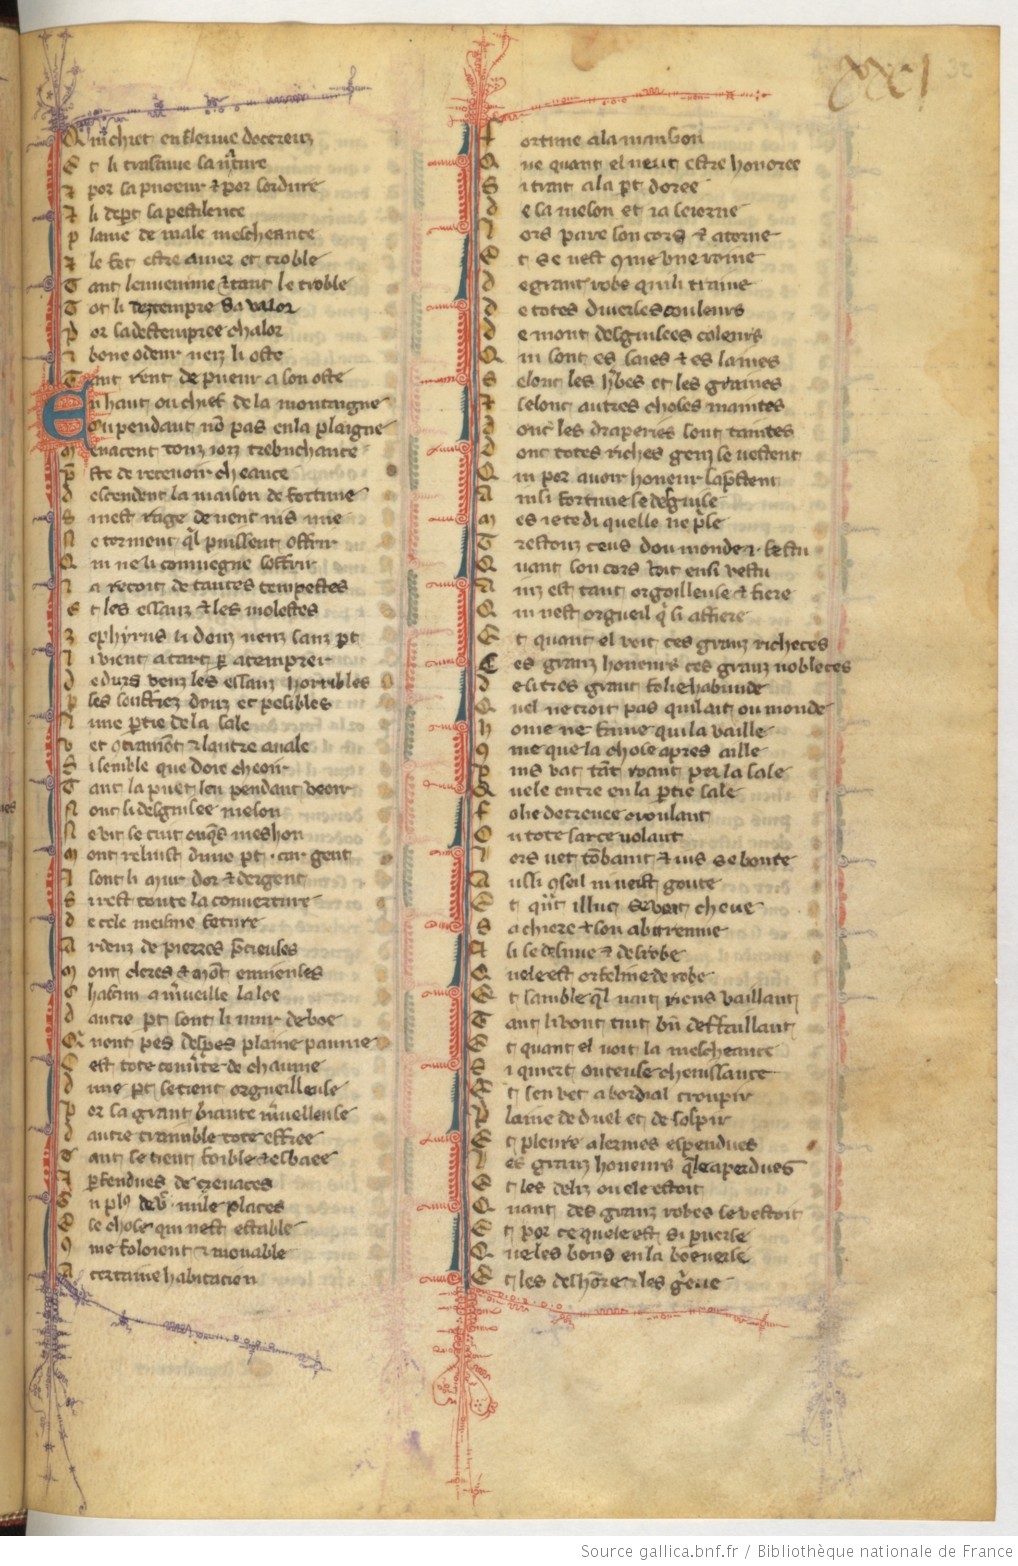 XXXI
Qui chiet en fleuve docereuz
Et li trasmue sa nature
Por sa pueur et por sordure
Li dept sa pestilence
Plaine de male mescheance
Le fet estre amer et troble
Tant lenvenime et tant le troble
Tot li deztempre sa valor
Por sa destempree chalor
bone odeur nenz li oste
Tant rent de pueur a son oste
En haut ou chief de la montaigne
Ou pendant no pas en la plaigne
Menacent touz iorz trebuchante
Pste de recevoir cheance
Descendent la maison de fortune
Si nest rage de vent nis une
Ne torment ql puissent offrir
Qui ne li conviegne soffrir
La recoit de toutes tempestes
Et les essauz et les molestes
Zephyrus li douz venz sanz pt
I vient a tart p atemprer
De durs venz les essauz horribles
Ples souffrez douz et pesibles
Lune ptie de la sale
Vet contramont et lautre avale
Si semble que doie cheoir
Tant la puet len pendant veoir
Nont li desguisee meson
Ne vit ce cuit onqs mes hon
Mont reluist dune pt car gent
I sont li mur dor et dergent
Si rest toute la converture
De cele meisme feture
Ardenz de pierres pcieuses
Mont cleres et mot ennieuses
Chascun a mveille la loe
Dautre pt sont li mur de boe
Qi nont pes despes plaine paume
Cest tote couvte de chaume
Dune pt se tient orgueilleuse
Por sa grant biaute mveilleuse
Dautre tramble tote effree
Tant se tient foible et esbaee
Et pfendues de crevaces
En plus de v mile places
Se chose qui nest estable
9me foloient et movable
A certaine habitacion
Fortune a la mauson
Que quant el veut estre honoree
Si trait a la pt doree
De sa meson et ia seiorne
Lors pare son cors et atorne
Et se vest 9me une roine
De grant robe qui li traine
De totes diverses couleurs
De mout desguisees coleurs
Qui sont es soies et es laines
Selonc les hbes et les graines
Et selonc autres choses maintes
Dont les draperies sont taintes
Dont totes riches genz se vestent
Qui por avoir honeur saprestent
Ainsi fortune se desguise
Mes ie te di quelle ne psle
Trestouz ceus dou monde 1 festu
Quant son cors voit ensi vestu
Ainz est tant orgoilleuse et fiere
Qui nest orgueil q si affiere
Et quant el voit ces granz richeces
Ces granz honeurs ces granz nobleces
De si tres grant folie habunde
Quel ne croit pas quil ait ou monde
Home ne fame qui la vaille
9me que la chose apres aille
Puis vat tat roant per la sale
Quele entre en la ptie sale
Folie decrevee croulant
O tote sa roe volant
Lors vet cobant et ius se boute
Ausi 9 seil ni veist goute
Et qnt illuc se voit cheue
Sa chiere et son abit remue
Et si se desnue et desrobe
Quele est orfeline de robe
Et samble ql nait riens vaillant
Tant li sont tuit bn deffaillant
Et quant el voit la mescheance
Si quiert onteuse chevissance
Et sen vet a bordial croupir
Plaine de duel et de sospir
Et pleure a lermes espendues
Les granz honeurs qle a perdues
Et les deliz ou ele estoit
Quant des granz robes se vestoit
Et por ce quele est si pverse
Que les bons en la boe verse
Et les deshore et les greve
Source gallica.bnf.fr / Bibliothèque nationale de France